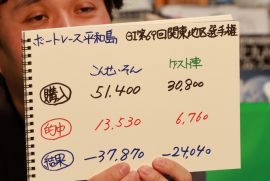 ボートレース平和島 GI第69回関東地区選手権
こんせいそん ゲスト陣
購入 51.400 30,800
的中 13.530 6,760
結果 -37.870 -24,040